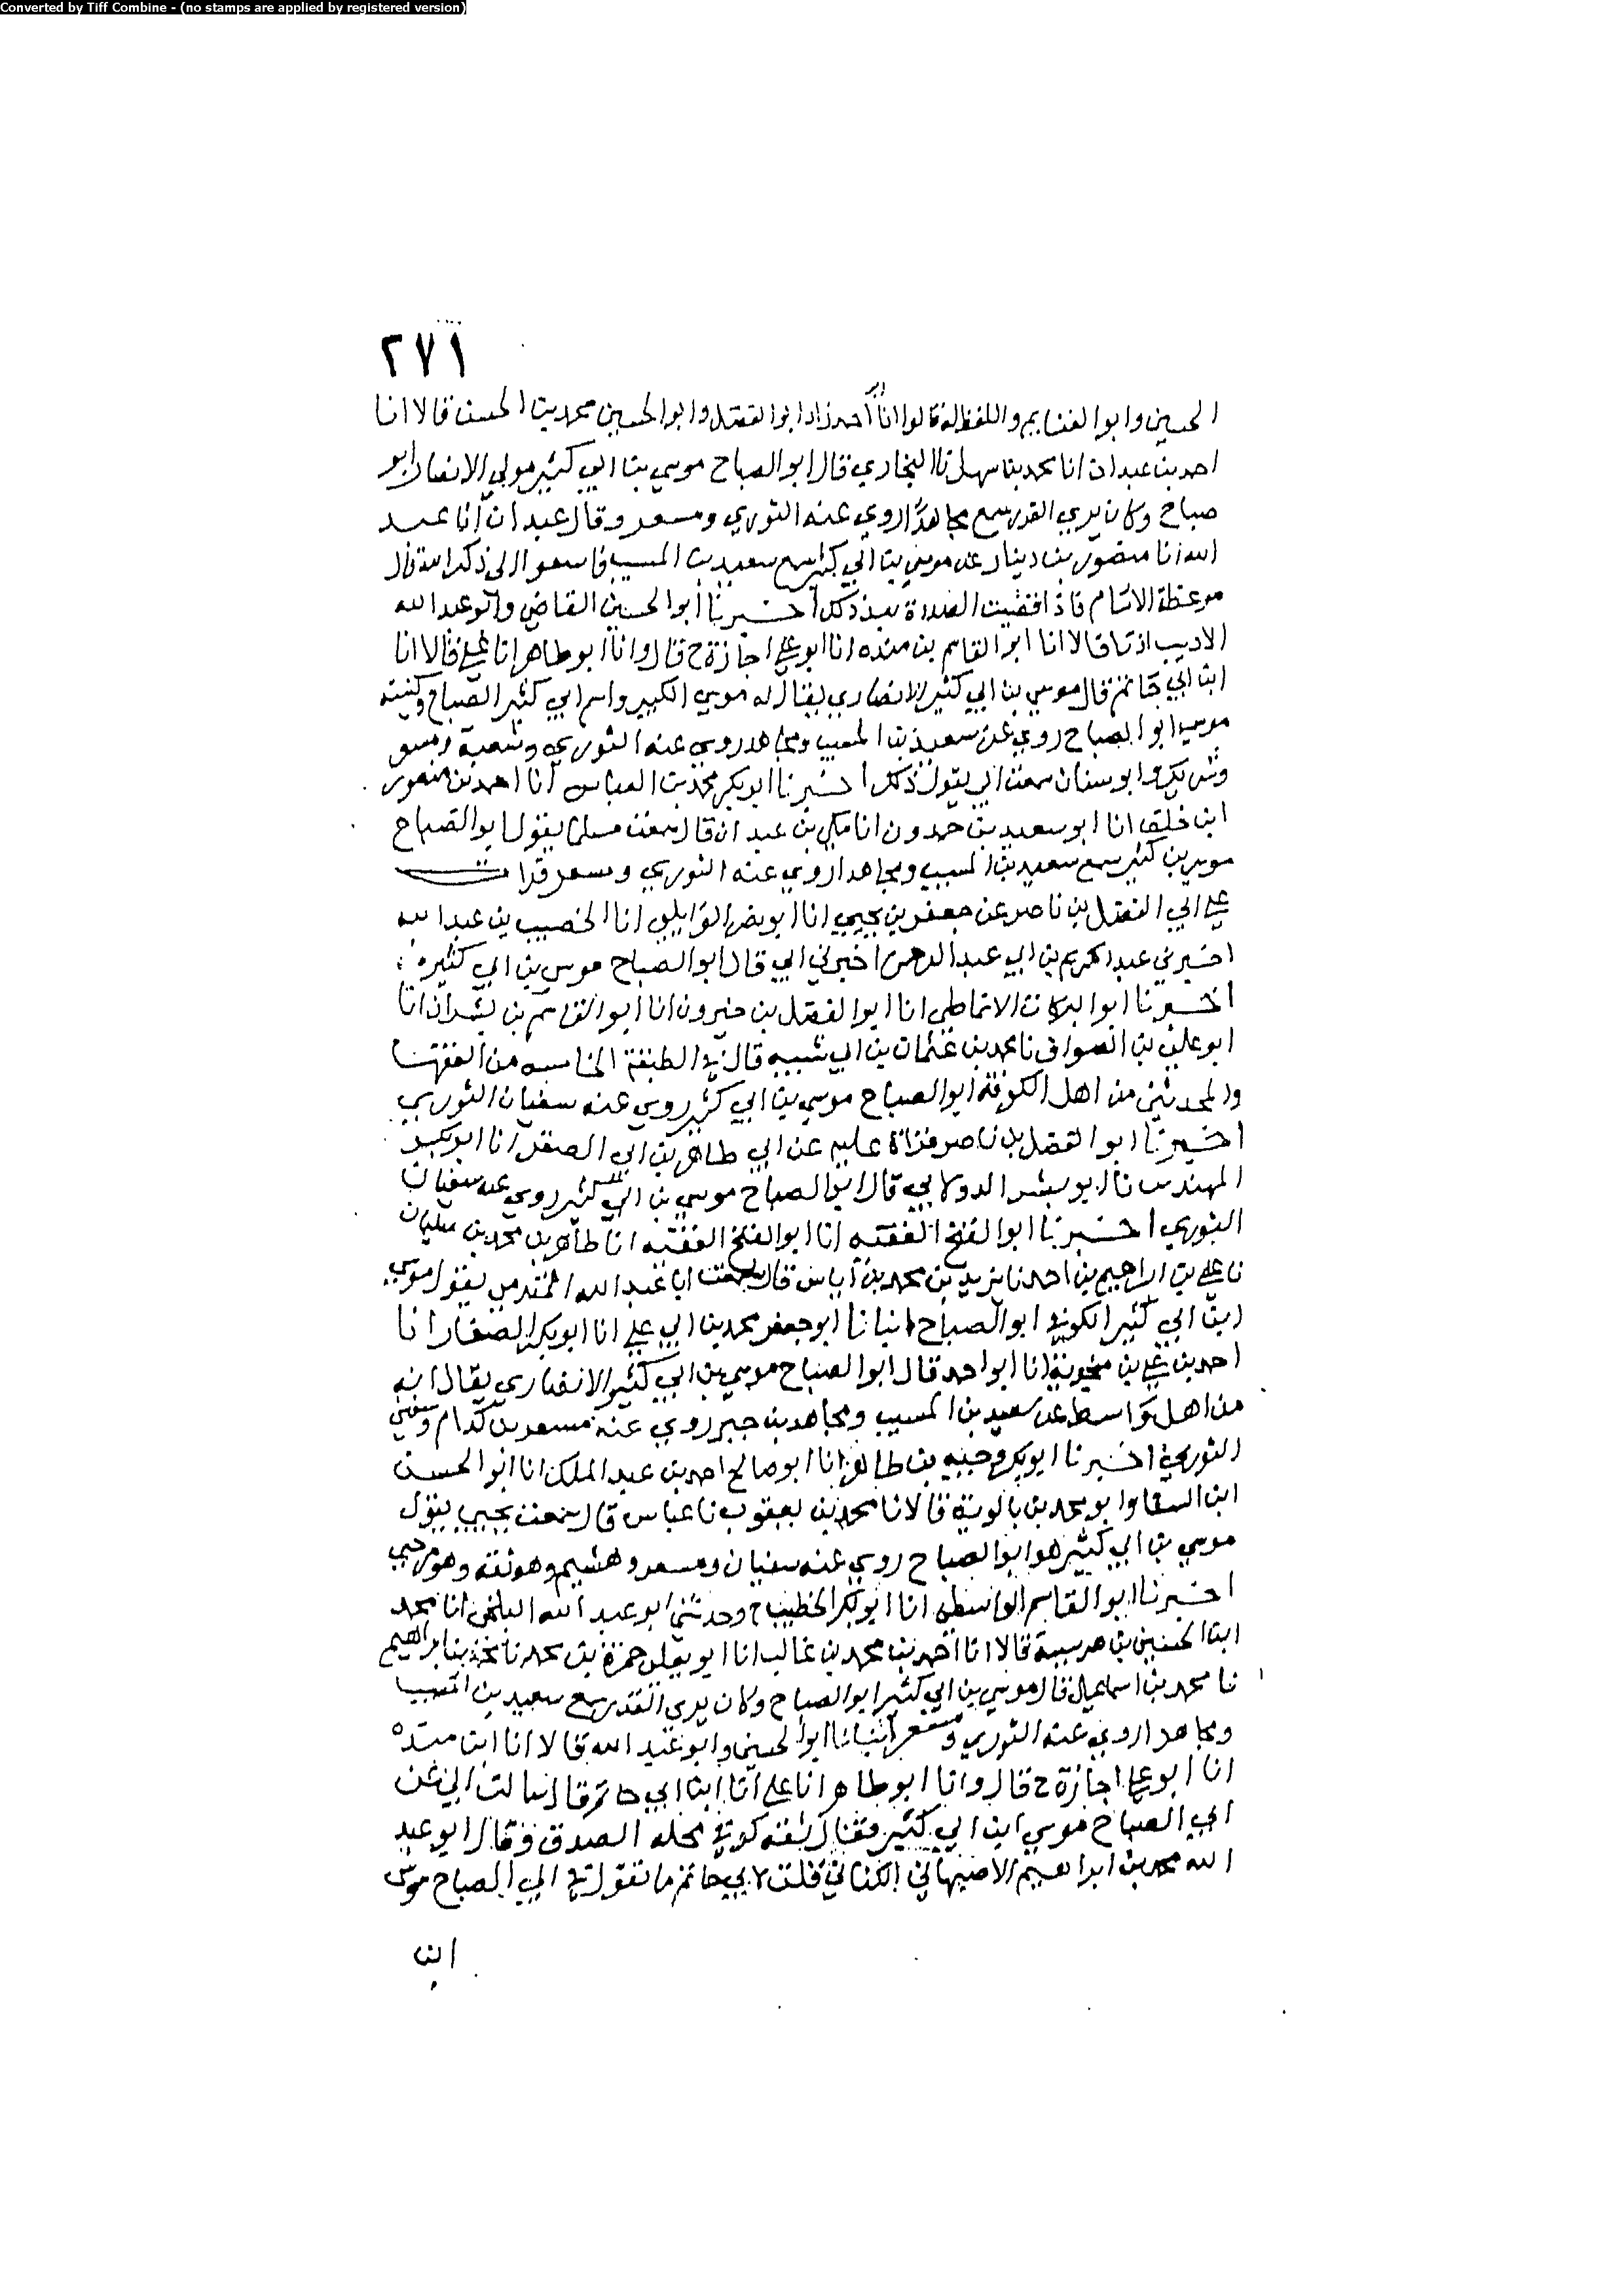 Converted by Tiff Combine - (no stamps are applied by registered version)
٢٧١
الحسين وابو الغنايم واللفظ له قالوا انا ابو احمد زاد ابو الفضل وابو الحسين محمد بن الحسن قالا انا
احمد بن عبدان انا محمد بن سهل نا البخاري قال ابو الصباح موسي بن ابي كثير مولي الانصار ابو
صباح وكان يري القدر سمع مجاهدا روي عنه الثوري ومسعر وقال عبدان انا عبد
الله انا منصور بن دينار عن موسي بن ابي كثير سمع سعيد بن المسيب فاسعوا الى ذكر الله قال
موعظة الامام فاذا قضيت الصلاة بعد ذلك اخبرنا ابو الحسين القاضي وابو عبد الله
الاديب اذنا قالا انا ابو القاسم بن منده انا ابو علي اجازة ح قال وانا ابو طاهر انا علي قالا انا
ابن ابي حاتم قال موسي بن ابي كثير الانصاري يقال له موسي الكبير واسم ابي كثير الصباح وكنيته
موسي ابو الصباح روي عن سعيد بن المسيب ومجاهد روي عنه الثوري وشعبة ومسعر
وشريك وابو سنان سمعت ابي يقول ذلك اخبرنا ابو بكر محمد بن العباس انا احمد بن منصور
ابن خلف انا ابو سعيد بن حمدون انا مكي بن عبدان قال سمعت مسلما يقول ابو الصباح
موسي بن كثير سمع سعيد بن المسيب ومجاهدا روي عنه الثوري ومسعر قرات
علي ابي الفضل بن ناصر عن جعفر بن يحيي انا ابو نصر الوايلي انا الخصيب بن عبد الله
اخبرني عبد الكريم بن ابي عبد الرحمن اخبرني ابي قال ابو الصباح موسي بن ابي كثير
اخبرنا ابو البركات الانماطي انا ابو الفضل بن خيرون انا ابو القاسم بن بشران انا
ابو علي بن الصواف نا محمد بن عثمان بن ابي شيبه قال في الطبقة الخامسه من الفقها
والمحدثين من اهل الكوفة ابو الصباح موسي بن ابي كثير روي عنه سفيان الثوري
اخبرنا ابو الفضل بن ناصر قراة عليه عن ابي طاهر بن ابي الصقر انا ابو بكر
المهندس نا ابو بشر الدولابي قال ابو الصباح موسي بن ابي كثير روي عنه سفيان
الثوري اخبرنا ابو الفتح الفقيه انا ابو الفتح الفقيه انا طاهر بن محمد بن سليمان
نا علي بن ابراهيم بن احمد نا يزيد بن محمد بن اياس قال سمعت ابا عبد الله المقدمي يقول موسي
ابن ابي كثير الكوفي ابو الصباح انبانا ابو جعفر محمد بن ابي علي انا ابو بكر الصفار انا
احمد بن علي بن منجوية انا ابو احمد قال ابو الصباح موسي بن ابي كثير الانصاري يقال انه
من اهل واسط عن سعيد بن المسيب ومجاهد بن جبر روي عنه مسعر بن كدام وسفين
الثوري اخبرنا ابو بكر وجيه بن طاهر انا ابو صالح احمد بن عبد الملك انا ابو الحسن
ابن السقا وابو محمد بن بالوية قالا نا محمد بن يعقوب نا عباس قال سمعت يحيي يقول
موسي بن ابي كثير هو ابو الصباح روي عنه سفيان ومسعر وهشيم وهو ثقه وهو مرجي
اخبرنا ابو القاسم الواسطي انا ابو بكر الخطيب ح وحدثني ابو عبد الله البلخي انا محمد
ابن الحسين بن هريسة قالا انا احمد بن محمد بن غالب انا ابو يعلي حمزة بن محمد نا محمد بن ابراهيم
نا محمد بن اسماعيل قال موسي بن ابي كثير ابو الصباح وكان يري القدر سمع سعيد بن المسيب
ومجاهدا روي عنه الثوري ومسعر انبانا ابو الحسين وابو عبد الله قالا انا ابن منده
انا ابو علي اجازة ح قال وانا ابو طاهر انا علي انا ابن ابي حاتم قال سالت ابي عن
ابي الصباح موسي ابن ابي كثير فقال ثقه كوفي محله الصدق وقال ابو عبد
الله محمد بن ابراهيم الاصبهاني الكناني قلت لابي حاتم ما تقول في ابي الصباح موسي
ابن